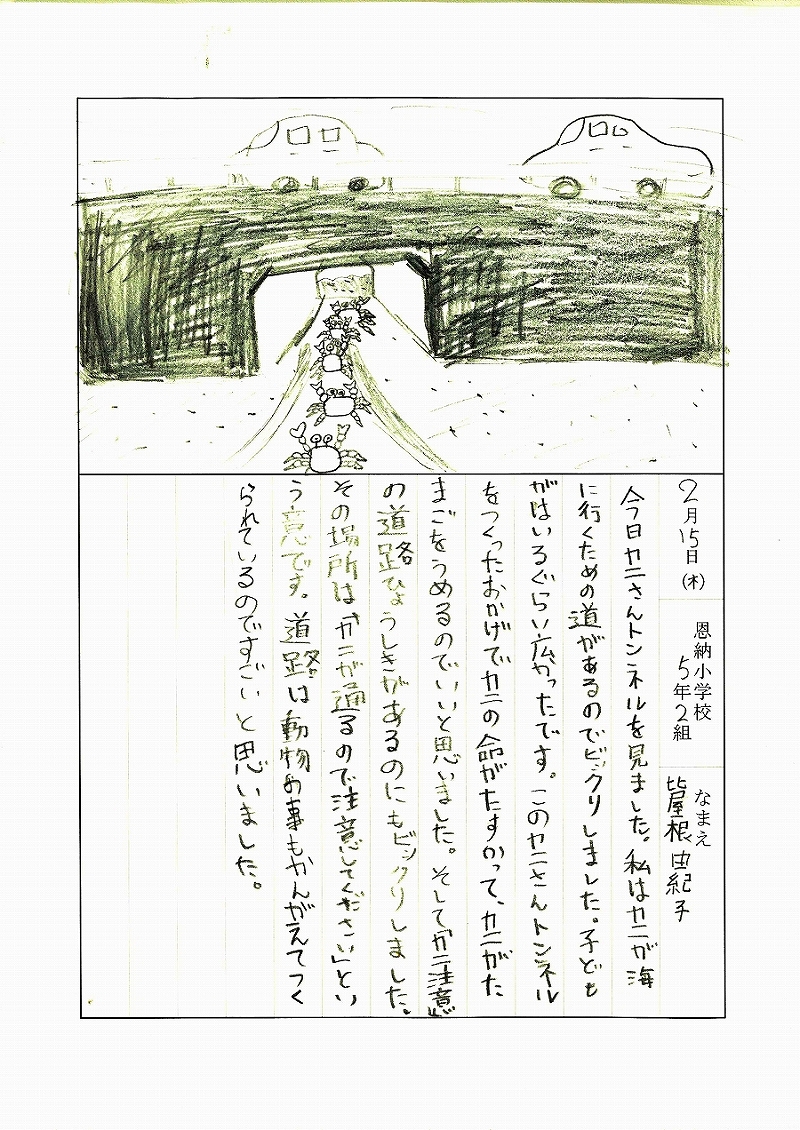 2月15日(木)
恩納小学校
5年2組
なまえ
皆屋根由紀子
今日カニさんトンネルを見ました。私はカニが海
に行くための道があるのでビックリしました。子ども
がはいるぐらい広かったです。このカニさんトンネル
をつくったおかげでカニの命がたすかって、カニがた
まごをうめるのでいいと思いました。そして「カニ注意」
の道路ひょうしきがあるのにもビックリしました。
その場所は「カニが通るので注意してください」とい
う意です。道路は動物の事もかんがえてつく
られているのですごいと思いました。